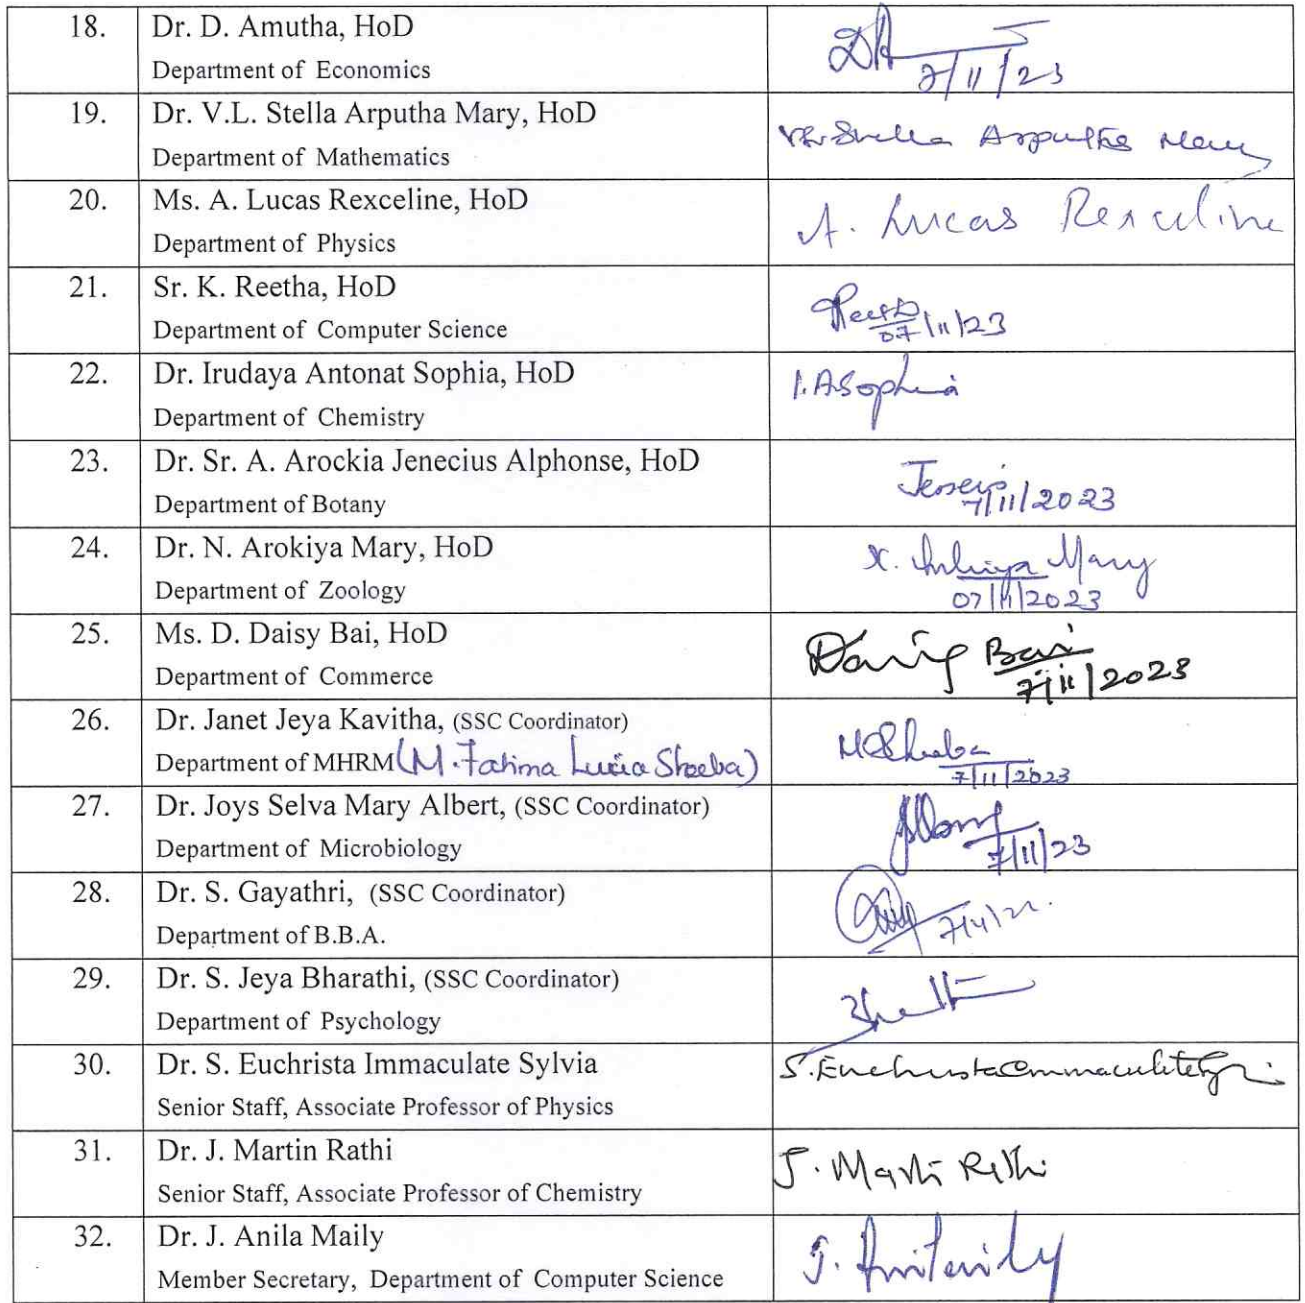 18. Dr. D. Amutha, HoD
Department of Economics
7/11/23
19. Dr. V.L. Stella Arputha Mary, HoD
Department of Mathematics
VL. Stella Arputha Mary
20. Ms. A. Lucas Rexceline, HoD
Department of Physics
A. Lucas Rexceline
21. Sr. K. Reetha, HoD
Department of Computer Science
07/11/23
22. Dr. Irudaya Antonat Sophia, HoD
Department of Chemistry
I.A Sophia
23. Dr. Sr. A. Arockia Jenecius Alphonse, HoD
Department of Botany
7/11/2023
24. Dr. N. Arokiya Mary, HoD
Department of Zoology
Mary
07/11/2023
25. Ms. D. Daisy Bai, HoD
Department of Commerce
Bai
7/11/2023
26. Dr. Janet Jeya Kavitha, (SSC Coordinator)
Department of MHRM (M. Fatima Lucia Sheeba)
7/11/2023
27. Dr. Joys Selva Mary Albert, (SSC Coordinator)
Department of Microbiology
7/11/23
28. Dr. S. Gayathri, (SSC Coordinator)
Department of B.B.A.
29. Dr. S. Jeya Bharathi, (SSC Coordinator)
Department of Psychology
30. Dr. S. Euchrista Immaculate Sylvia
Senior Staff, Associate Professor of Physics
S. Euchrista
31. Dr. J. Martin Rathi
Senior Staff, Associate Professor of Chemistry
J. Martin Rathi
32. Dr. J. Anila Maily
Member Secretary, Department of Computer Science